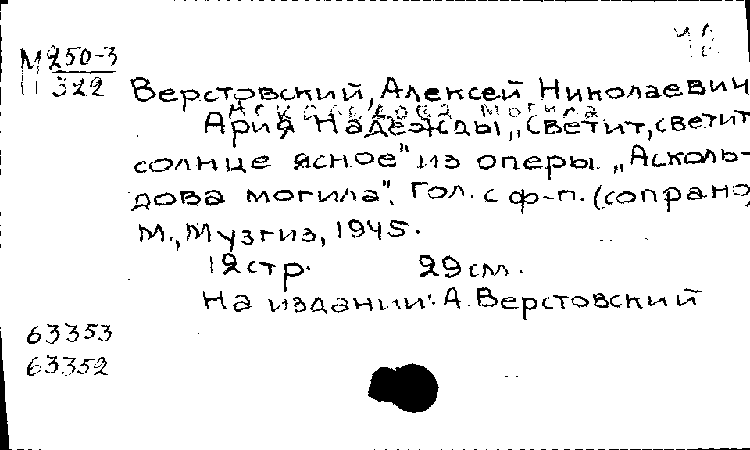 М 250-3
322
Верстовский, Алексей Николаевич
Аскольдова могила
Ария Надежды „Светит, светит
солнце ясное" из оперы „Асколь-
дова могила". Гол. с ф-п. (сопрано)
М., Музгиз, 1945.
12 стр. 29 см.
На издании: А. Верстовский
63353
63352